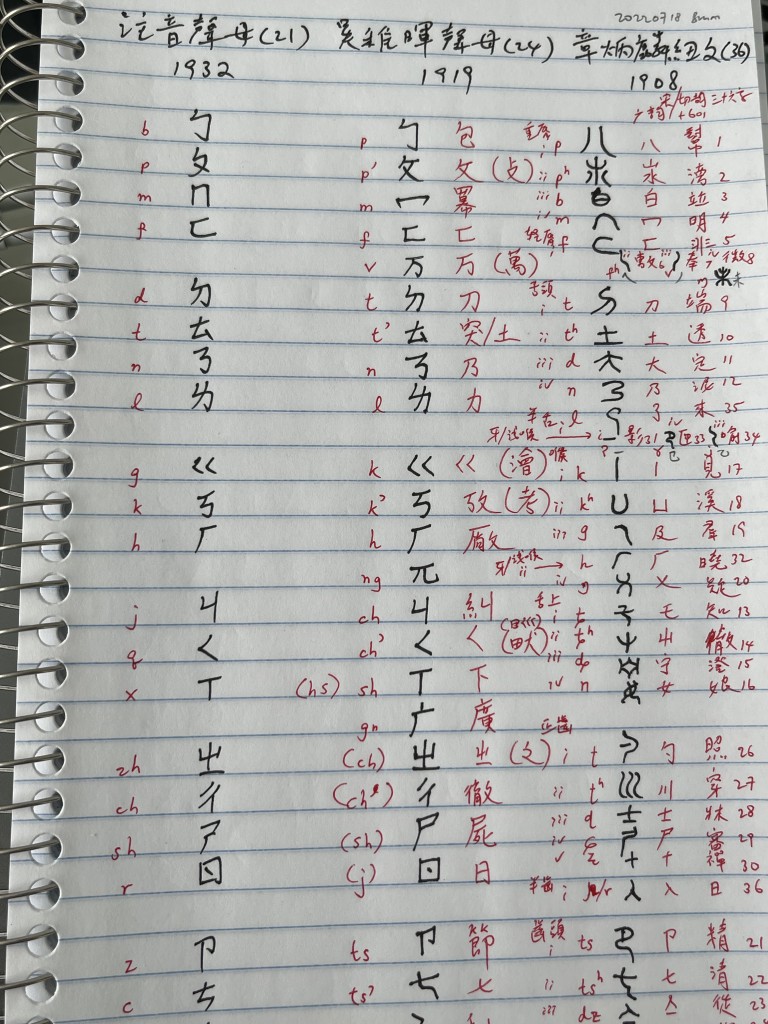 20220718
注音聲母(21) 吳稚暉聲母(24) 章炳麟紐文(36)
1932 1919 1908
b ㄅ p ㄅ 包 i p 八 幫 1
p ㄆ p' ㄆ 攵(攴) ii pʰ 滂 2
m ㄇ m 冖 冪 iii b 白 白 並 3
iv m 冖 明 4
f ㄈ f ㄈ 匚 f 匚 非 5
v 万 万(萬) 敷 6 奉 7 微 8
d ㄉ t ㄉ 刀 舌頭 i t 刀 端 9
t ㄊ t' ㄊ 突/土 ii tʰ 土 土 透 10
n ㄋ n ㄋ 乃 iii d 大 大 定 11
iv n 乃 泥 12
l ㄌ l ㄌ 力 l 了 來 35
影31 匣33 喻34
g ㄍ k ㄍ 巜(澮) i k 見 17
k ㄎ k' ㄎ 攷(考) ii kʰ 凵 溪 18
h ㄏ h ㄏ 厰 iii g 及 羣 19
h 厂 曉 32
ng 兀 iv 㐅 疑 20
j ㄐ ch ㄐ 糾 舌上 i 乇 知 13
q ㄑ ch' ㄑ ㄑ(畎) ii 屮 徹 14
iii 守 澄 15
x ㄒ (hs) sh ㄒ 下 iv n 女 娘 16
gn 广 廣
zh ㄓ (ch) ㄓ 㞢(之) 正齒 i t 勺 照 26
ch ㄔ (ch') ㄔ 徹 ii tʰ 川 穿 27
iii d 士 士 牀 28
sh ㄕ (sh) ㄕ 屍 iv 尸 審 29
v z 十 十 禪 30
r ㄖ (j) ㄖ 日 半齒 i 入 入 日 36
z ㄗ ts ㄗ 節 齒頭 i ts 卩 精 21
c ㄘ ts' ㄘ 七 ii tsʰ 七 七 清 22
iii dz 亼 從 23